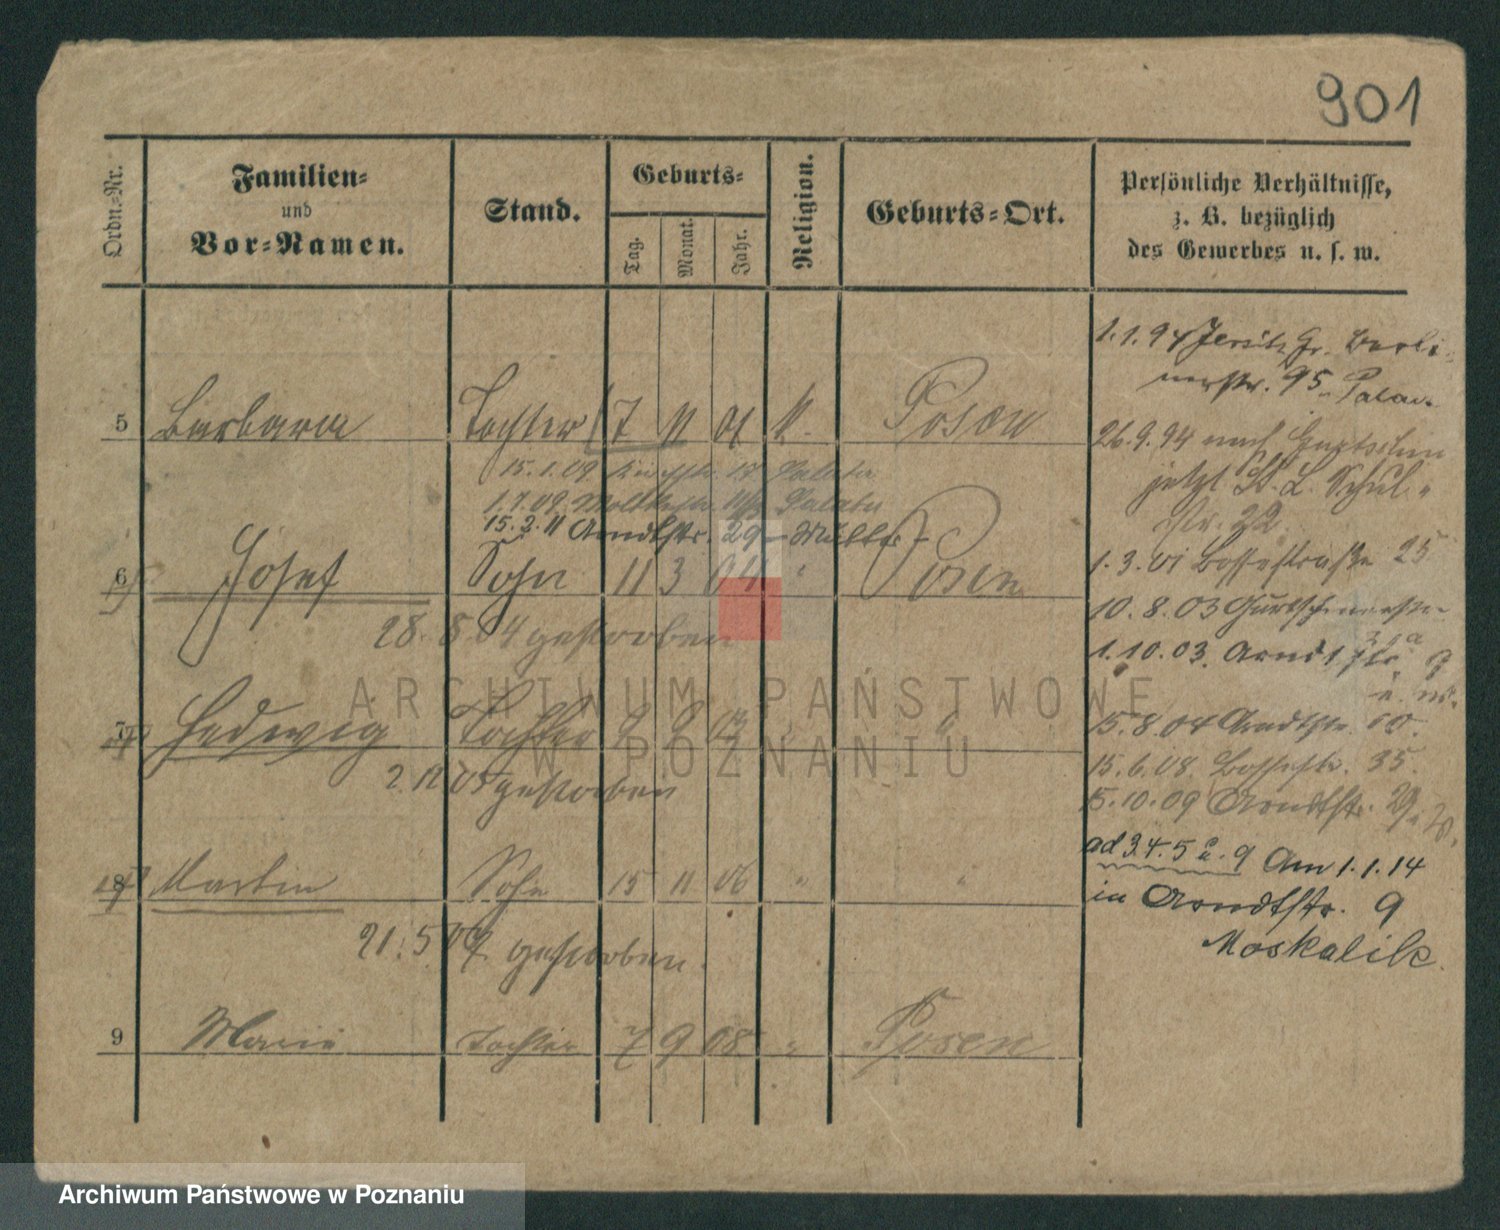 901
Ordn.-Nr.
Familien-
und
Vor-Namen.
Stand.
Geburts-
Tag.
Monat.
Jahr.
Religion.
Geburts-Ort.
Persönliche Verhältnisse,
z. B. bezüglich
des Gewerbes u. s. w.
1.1.94 Jersitz Gr. Berli-
nerstr. 95
5 Barbara Tochter 7 11 01 Posen
26.9.94 nach Gurtschin
jetzt St. L. Schul-
str. 22
15.1.09
1.7.09 Moltkestr.
15.2.11 Arndtstr. 29
6 Josef Sohn 11 3 04 " Posen
28.8.04 gestorben
1.3.01 Bossestraße 25
10.8.03
1.10.03 Arndtstr. 9
7 Hedwig Tochter " "
2.12.05 gestorben
15.8.04 Arndtstr. 10.
15.6.08. Bossestr. 35.
15.10.09 Arndtstr. 29
8 Martin Sohn 15 11 06 " "
21.5.07 gestorben.
ad 3.4.5 u. 9 Am 1.1.14
in Arndtstr. 9
Moskalik
9 Marie Tochter 7 9 08 " Posen
ARCHIWUM PAŃSTWOWE
W POZNANIU
Archiwum Państwowe w Poznaniu